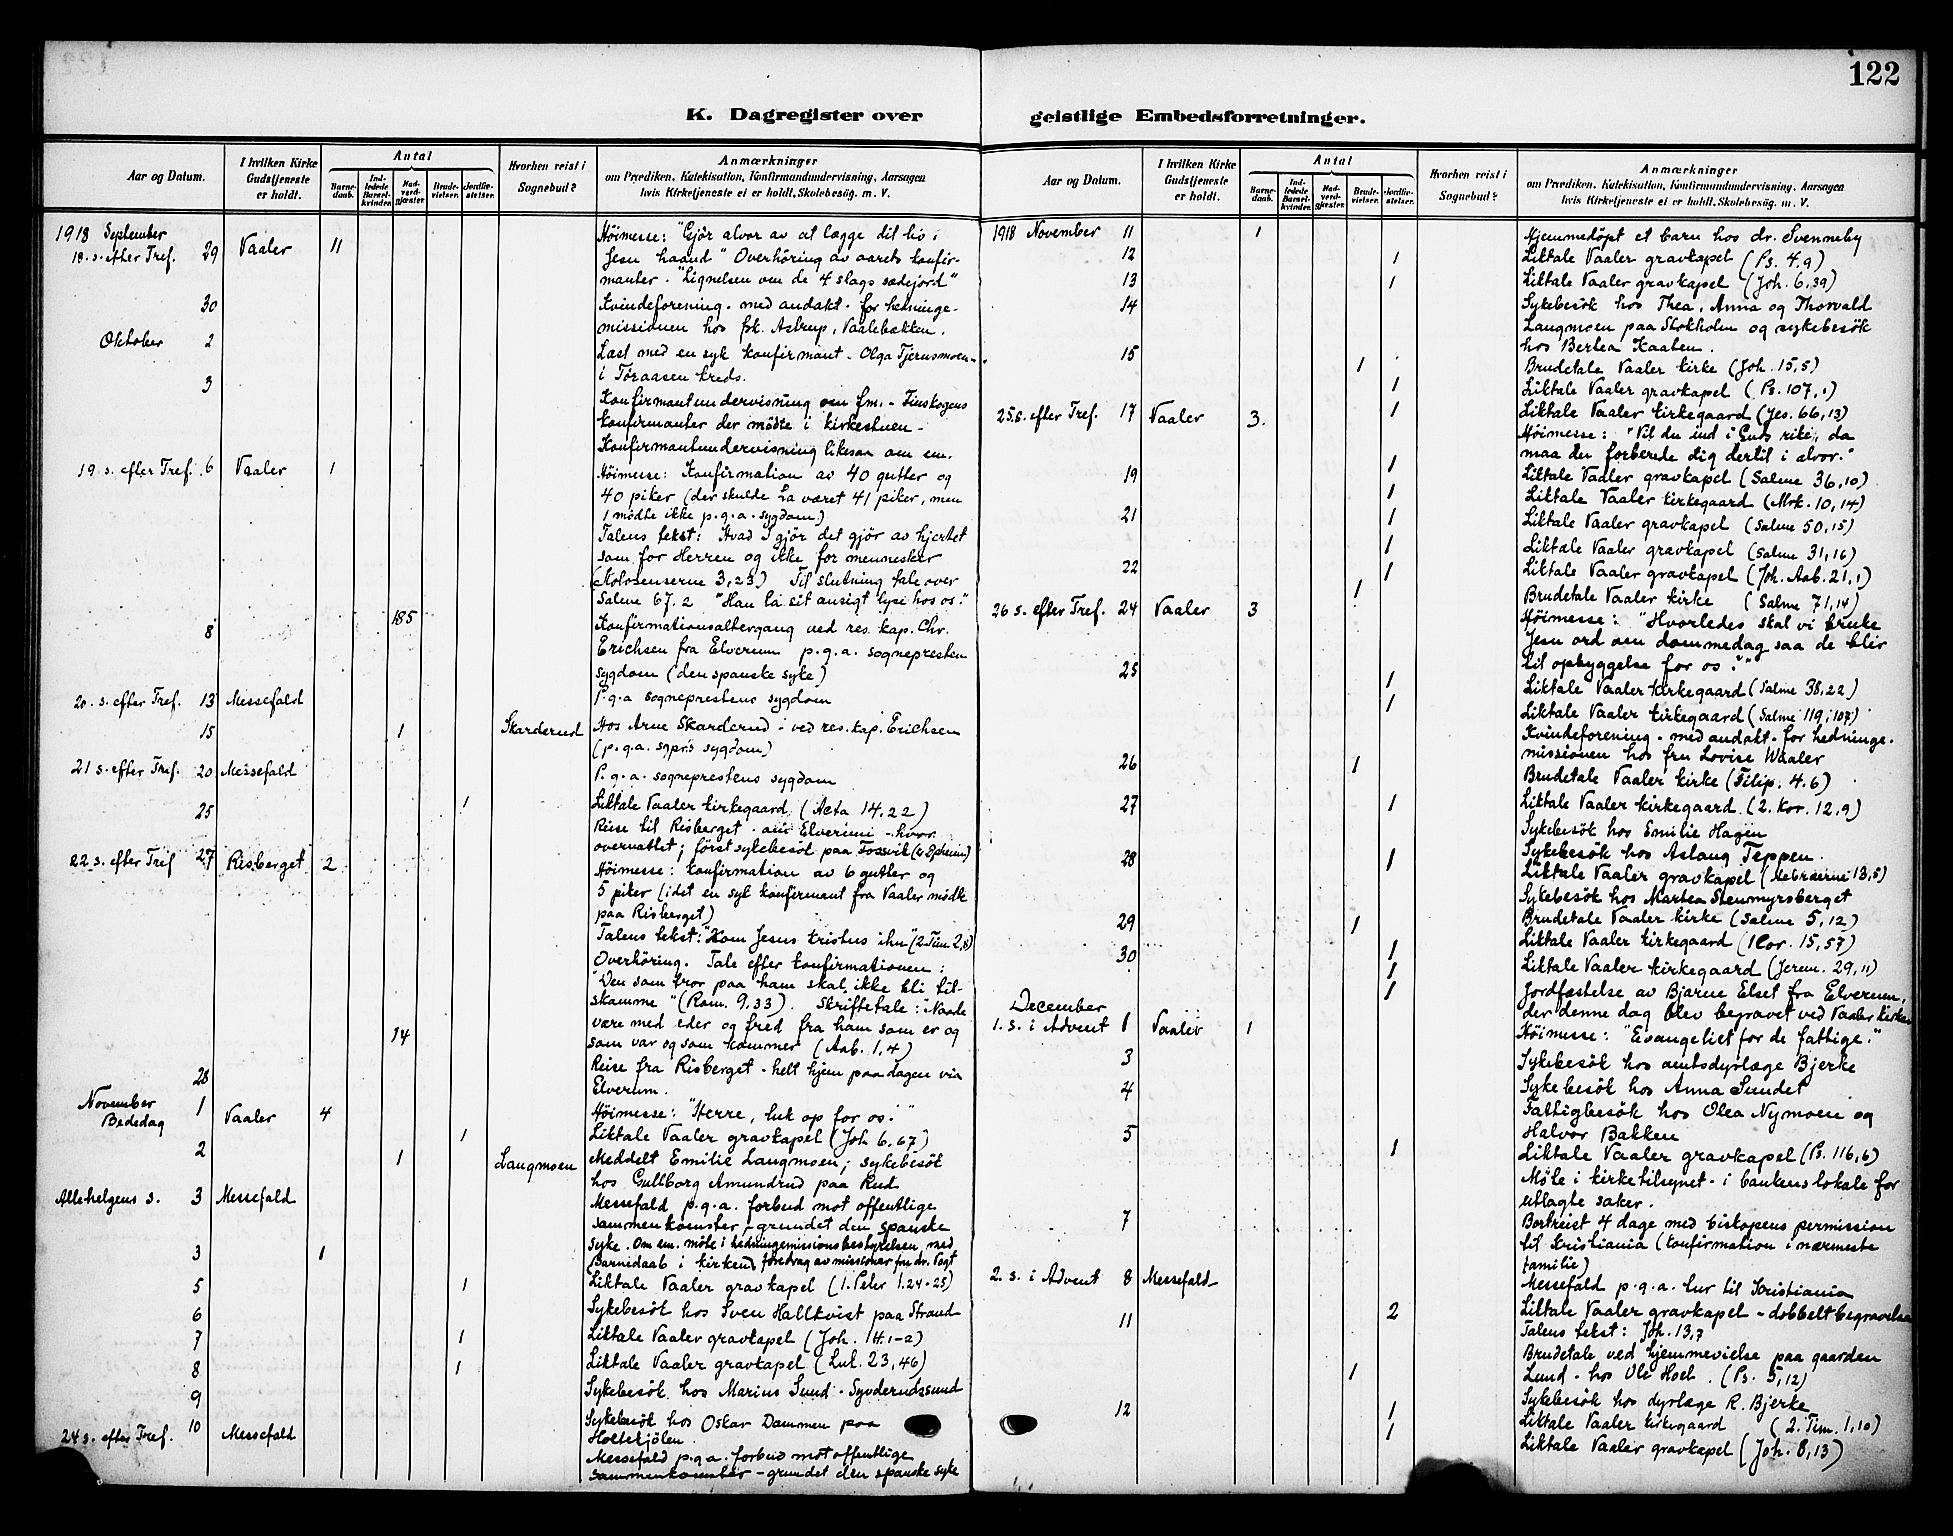 122
K. Dagregister over
Aar og Datum.
I hvilken Kirke Gudstjeneste er holdt.
Antal
Barne-daab.
Ind-ledede Barsel-kvinder.
Nad-verd-gjæster.
Brude-vielser.
Jordfæ-stelser.
Hvorhen reist i Sognebud?
Anmærkninger
om Prædiken, Katekisation, Konfirmandundervisning, Aarsagen
hvis Kirketjeneste ei er holdt, Skolebesøg. m. V.
1918 September Höimesse: "Gjör alvor av at lægge dit liv i
18. s. efter Tref. 29 Vaaler 11 Jesu haand" Overhöring av aarets konfir-
manter - "Lignelsen om de 4 slags sædejord"
30 Kvindeforening - med andakt - for hedninge-
missionen hos frk. Astrup, Vaalebakken.
Oktober 2 Læst med en syk konfirmant - Olga Tjernsmoen -
i Töraasen kreds.
3 Konfirmantundervisning om fm. - Finskogens
konfirmanter der mödte i kirkestuen -
Konfirmantundervisning likesaa om em.
19. s. efter Tref. 6 Vaaler 1 Höimesse: Konfirmation av 40 gutter og
40 piker (der skulde ha været 41 piker, men
1 mödte ikke p.g.a. sygdom)
Talens tekst: Hvad I gjör det gjör av hjertet
som for Herren og ikke for mennesker
(Kolossenserne 3,23) Til slutning tale over
Salme 67.2 "Han la sit ansigt lyse hos os."
8 185 Konfirmationsaltergang ved res. kap. Chr.
Erichsen fra Elverum p.g.a. sognepresten
sygdom (den spanske syke)
20. s. efter Tref. 13 Messefald P.g.a sogneprestens sygdom
15 1 Skarderud Hos Arne Skarderud - ved res. kap. Erichsen
(p.g.a. sgpr.s sygdom)
21 s. efter Tref. 20 Messefald P.g.a. sogneprestens sygdom
1 Liktale Vaaler kirkegaard (Acta 14.22)
25 Reise til Risberget - om Elverum - hvor
overnattet; först sykebesök paa Fossvik
22 s. efter Tref 27 Risberget 2 Höimesse: Konfirmation av 6 gutter og
5 piker (idet en syk konfirmant fra Vaaler mödte
paa Risberget)
Talens tekst: "Kom Jesus Kristus ihu" (2 Tim. 2,8)
Overhöring. Tale efter konfirmationen:
"Den som tror paa ham skal ikke bli til-
skamme" (Rom. 9.33). Skriftetale: "Naade
14 være med eder og fred fra ham som er og
som var og som kommer (Aab. 1,4)
28 Reise fra Risberget - helt hjem paa dagen via
Elverum.
November
Bededag 1 Vaaler 4 Höimesse: "Herre, luk op for os!"
1 Liktale Vaaler gravkapel (Joh 6.67)
2 1 Langmoen Meddelt Emilie Langmoen; sykebesök
hos Gullborg Amundrud paa Rud
Allehelgens s. 3 Messefald Messefald p.g.a. forbud mot offentlige
sammenkomster - grundet den spanske
syke. Om em. möte i hedningemissionsbestyrelsen, med
3 1 Barnedaab i kirken, foredrag av missionær fru dr. Vogt
5 1 Liktale Vaaler gravkapel (1. Peter 1.24-25)
6 Sykebesök hos Sven Hallkvist paa Strand
7 1 Liktale Vaaler gravkapel (Joh. 14.1-2)
8 1 Liktale Vaaler gravkapel (Luk. 23,46)
9 Sykebesök hos Marius Sund - Synderudssund
10 Sykebesök hos Oskar Dammen paa
Holtekjölen
24 s. efter Tref. Messefald Messefald p.g.a. forbud mot offentlige
sammenkomster - grundet den spanske syke
geistlige Embedsforretninger.
Aar og Datum.
I hvilken Kirke Gudstjeneste er holdt.
Antal
Barne-daab.
Ind-ledede Barsel-kvinder.
Nad-verd-gjæster.
Brude-vielser.
Jordfæ-stelser.
Hvorhen reist i Sognebud?
Anmærkninger
om Prædiken, Katekisation, Konfirmandundervisning, Aarsagen
hvis Kirketjeneste ei er holdt, Skolebesøg. m. V.
1918 November 11 1 Hjemmedöpt et barn hos dr. Svenneby
12 1 Liktale Vaaler gravkapel (Ps. 4.9)
13 1 Liktale Vaaler gravkapel (Joh. 6,39)
14 Sykebesök hos Thea, Anna og Thorvald
Langmoen paa Stokholen og sykebesök
hos Bertea Kaaten.
15 1 Brudetale Vaaler kirke (Joh. 15,5)
1 Liktale Vaaler gravkapel (Ps. 107,1)
1 Liktale Vaaler kirkegaard (Jes. 66,13)
25 s. efter Tref. 17 Vaaler 3. Höimesse: "Vil du ind i Guds rike, da
maa du forberede dig dertil i alvor."
19 1 Liktale Vaaler gravkapel (Salme 36,10)
1 Liktale Vaaler kirkegaard (Mrk. 10,14)
21 1 Liktale Vaaler gravkapel (Salme 50,15)
1 Liktale Vaaler gravkapel (Salme 31,16)
22 1 Liktale Vaaler gravkapel (Joh. Aab. 21,1)
1 Brudetale Vaaler kirke (Salme 71,14)
26 s. efter Tref. 24 Vaaler 3 Höimesse: "Hvorledes skal vi bruke
Jesu ord om dommedag saa de blir
til opbyggelse for os?"
25 1 Liktale Vaaler kirkegaard (Salme 38,22)
1 Liktale Vaaler kirkegaard (Salme 119,107)
Kvindeforening - med andakt - for hedninge-
missionen hos fru Lovise Waaler
26 1 Brudetale Vaaler kirke (Filip. 4.6)
27 1 Liktale Vaaler kirkegaard (2. Kor. 12,9)
Sykebesök hos Emilie Hagen
Sykebesök hos Aslaug Teppen.
28 1 Liktale Vaaler gravkapel (Hebræerne 13,5)
Sykebesök hos Martea Stenmyrsberget
29 1 Brudetale Vaaler kirke (Salme 5,12)
1 Liktale Vaaler kirkegaard (1 Cor. 15,57)
30 1 Liktale Vaaler kirkegaard (Jerem. 29,11)
1 Jordfæstelse av Bjarne Elset fra Elverum,
December der denne dag blev begravet ved Vaaler kirke
1. s. i Advent 1 Vaaler 1 Höimesse: "Evangeliet for de fattige."
3 Sykebesök hos amtsdyrlæge Bjerke
4 Sykebesök hos Anna Sundet
Fattigbesök hos Olea Nymoen og
5 Halvor Bakken
1 Liktale Vaaler gravkapel (Ps. 116,6)
Möte i kirketilsynet - i bankens lokale for
utlagte saker.
7 Bortreist 4 dage med biskopens permission
til Kristiania (konfirmation i nærmeste
familie)
2. s. i Advent 8 Messefald Messefald p.g.a. tur til Kristiania
11 2 Liktale Vaaler gravkapel - dobbeltbegravelse
Talens tekst: Joh. 13,7
Brudetale ved hjemmevielse paa gaarden
1 Lund - hos Ole Hoel. (Ps. 5,12)
12 Sykebesök hos dyrlæge R. Bjerke
1 Liktale Vaaler kirkegaard (2. Tim. 1,10)
1 Liktale Vaaler gravkapel (Joh. 8,13)